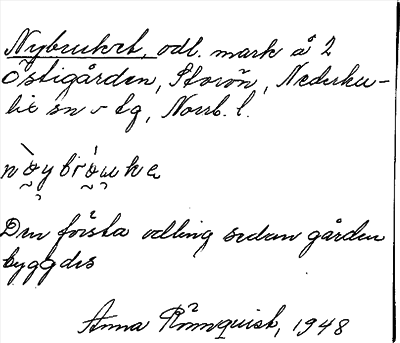 Nybruket, odl. mark å 2
Östigården, Storön, Nederka-
lix sn o tg, Norrb. l.
Den första odling sedan gården
byggdes
Anna Rönnquist, 1948